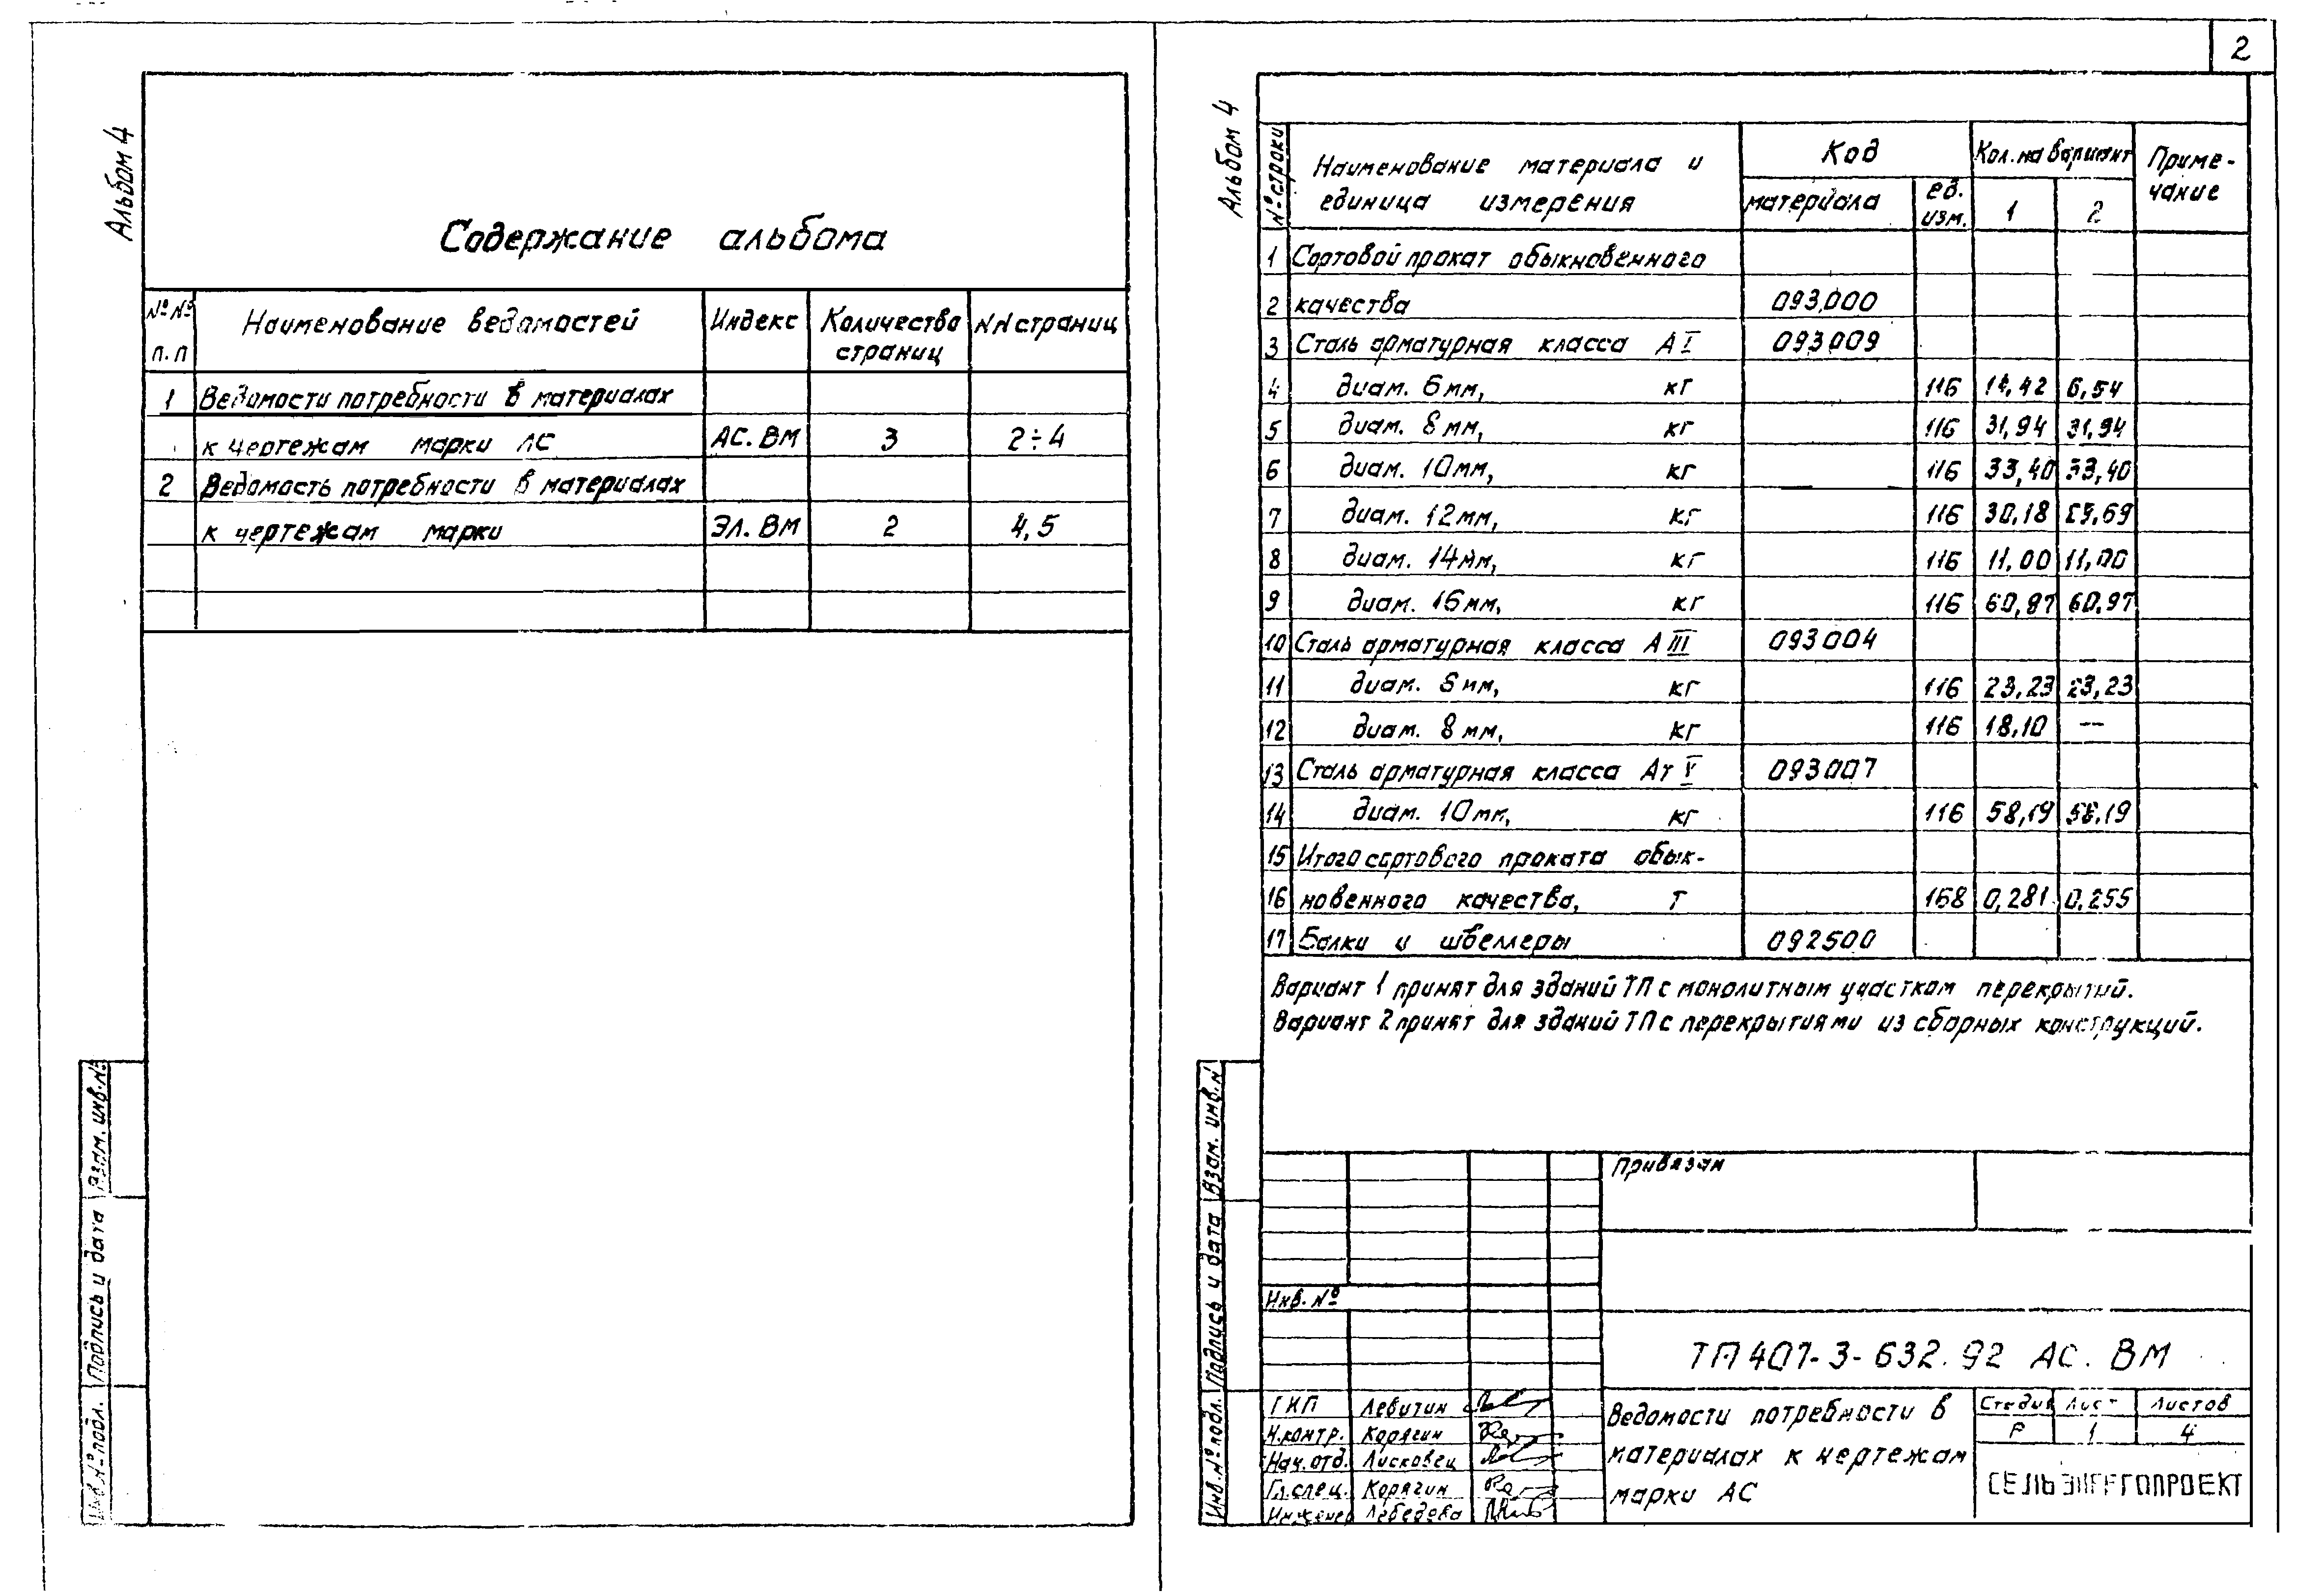 Альбом 4
Содержание альбома
№ № п.п Наименование ведомостей Индекс Количество страниц NN страниц
1 Ведомости потребности в материалах
к чертежам марки АС АС.ВМ 3 2÷4
2 Ведомость потребности в материалах
к чертежам марки ЭЛ.ВМ 2 4,5
Взам. инв.№
Подпись и дата
Инв.№ подл.
2
Альбом 4
№ строки Наименование материала и единица измерения Код Кол. на вариант Примечание
материала ед. изм. 1 2
1 Сортовой прокат обыкновенного
2 качества 093000
3 Сталь арматурная класса АI 093009
4 диам. 6мм, кг 116 6,54
5 диам. 8мм, кг 116 31,94 31,94
6 диам. 10мм, кг 116 33,40 33,40
7 диам. 12мм, кг 116 30,18
8 диам. 14мм, кг 116 11,00 11,00
9 диам. 16мм, кг 116 60,97 60,97
10 Сталь арматурная класса АIII 093004
11 диам. 6мм, кг 116 23,23 23,23
12 диам. 8мм, кг 116 18,10 —
13 Сталь арматурная класса Ат V 093007
14 диам. 10мм, кг 116 58,19 58,19
15 Итого сортового проката обык-
16 новенного качества, т 168 0,281 0,255
17 Балки и швеллеры 092500
Вариант 1 принят для зданий ТП с монолитным участком перекрытий.
Вариант 2 принят для зданий ТП с перекрытиями из сборных конструкций.
Взам. инв.N
Подпись и дата
Инв.№ подл.
Привязан
Инв. №
ТП 407-3-632.92 АС. ВМ
ГИП Левитин
Н.контр. Корягин
Нач.отд. Лисковец
Гл.спец. Корягин
Инженер Лебедева
Ведомости потребности в
материалах к чертежам
марки АС
Стадия Лист Листов
Р 1 4
СЕЛЬЭНЕРГОПРОЕКТ